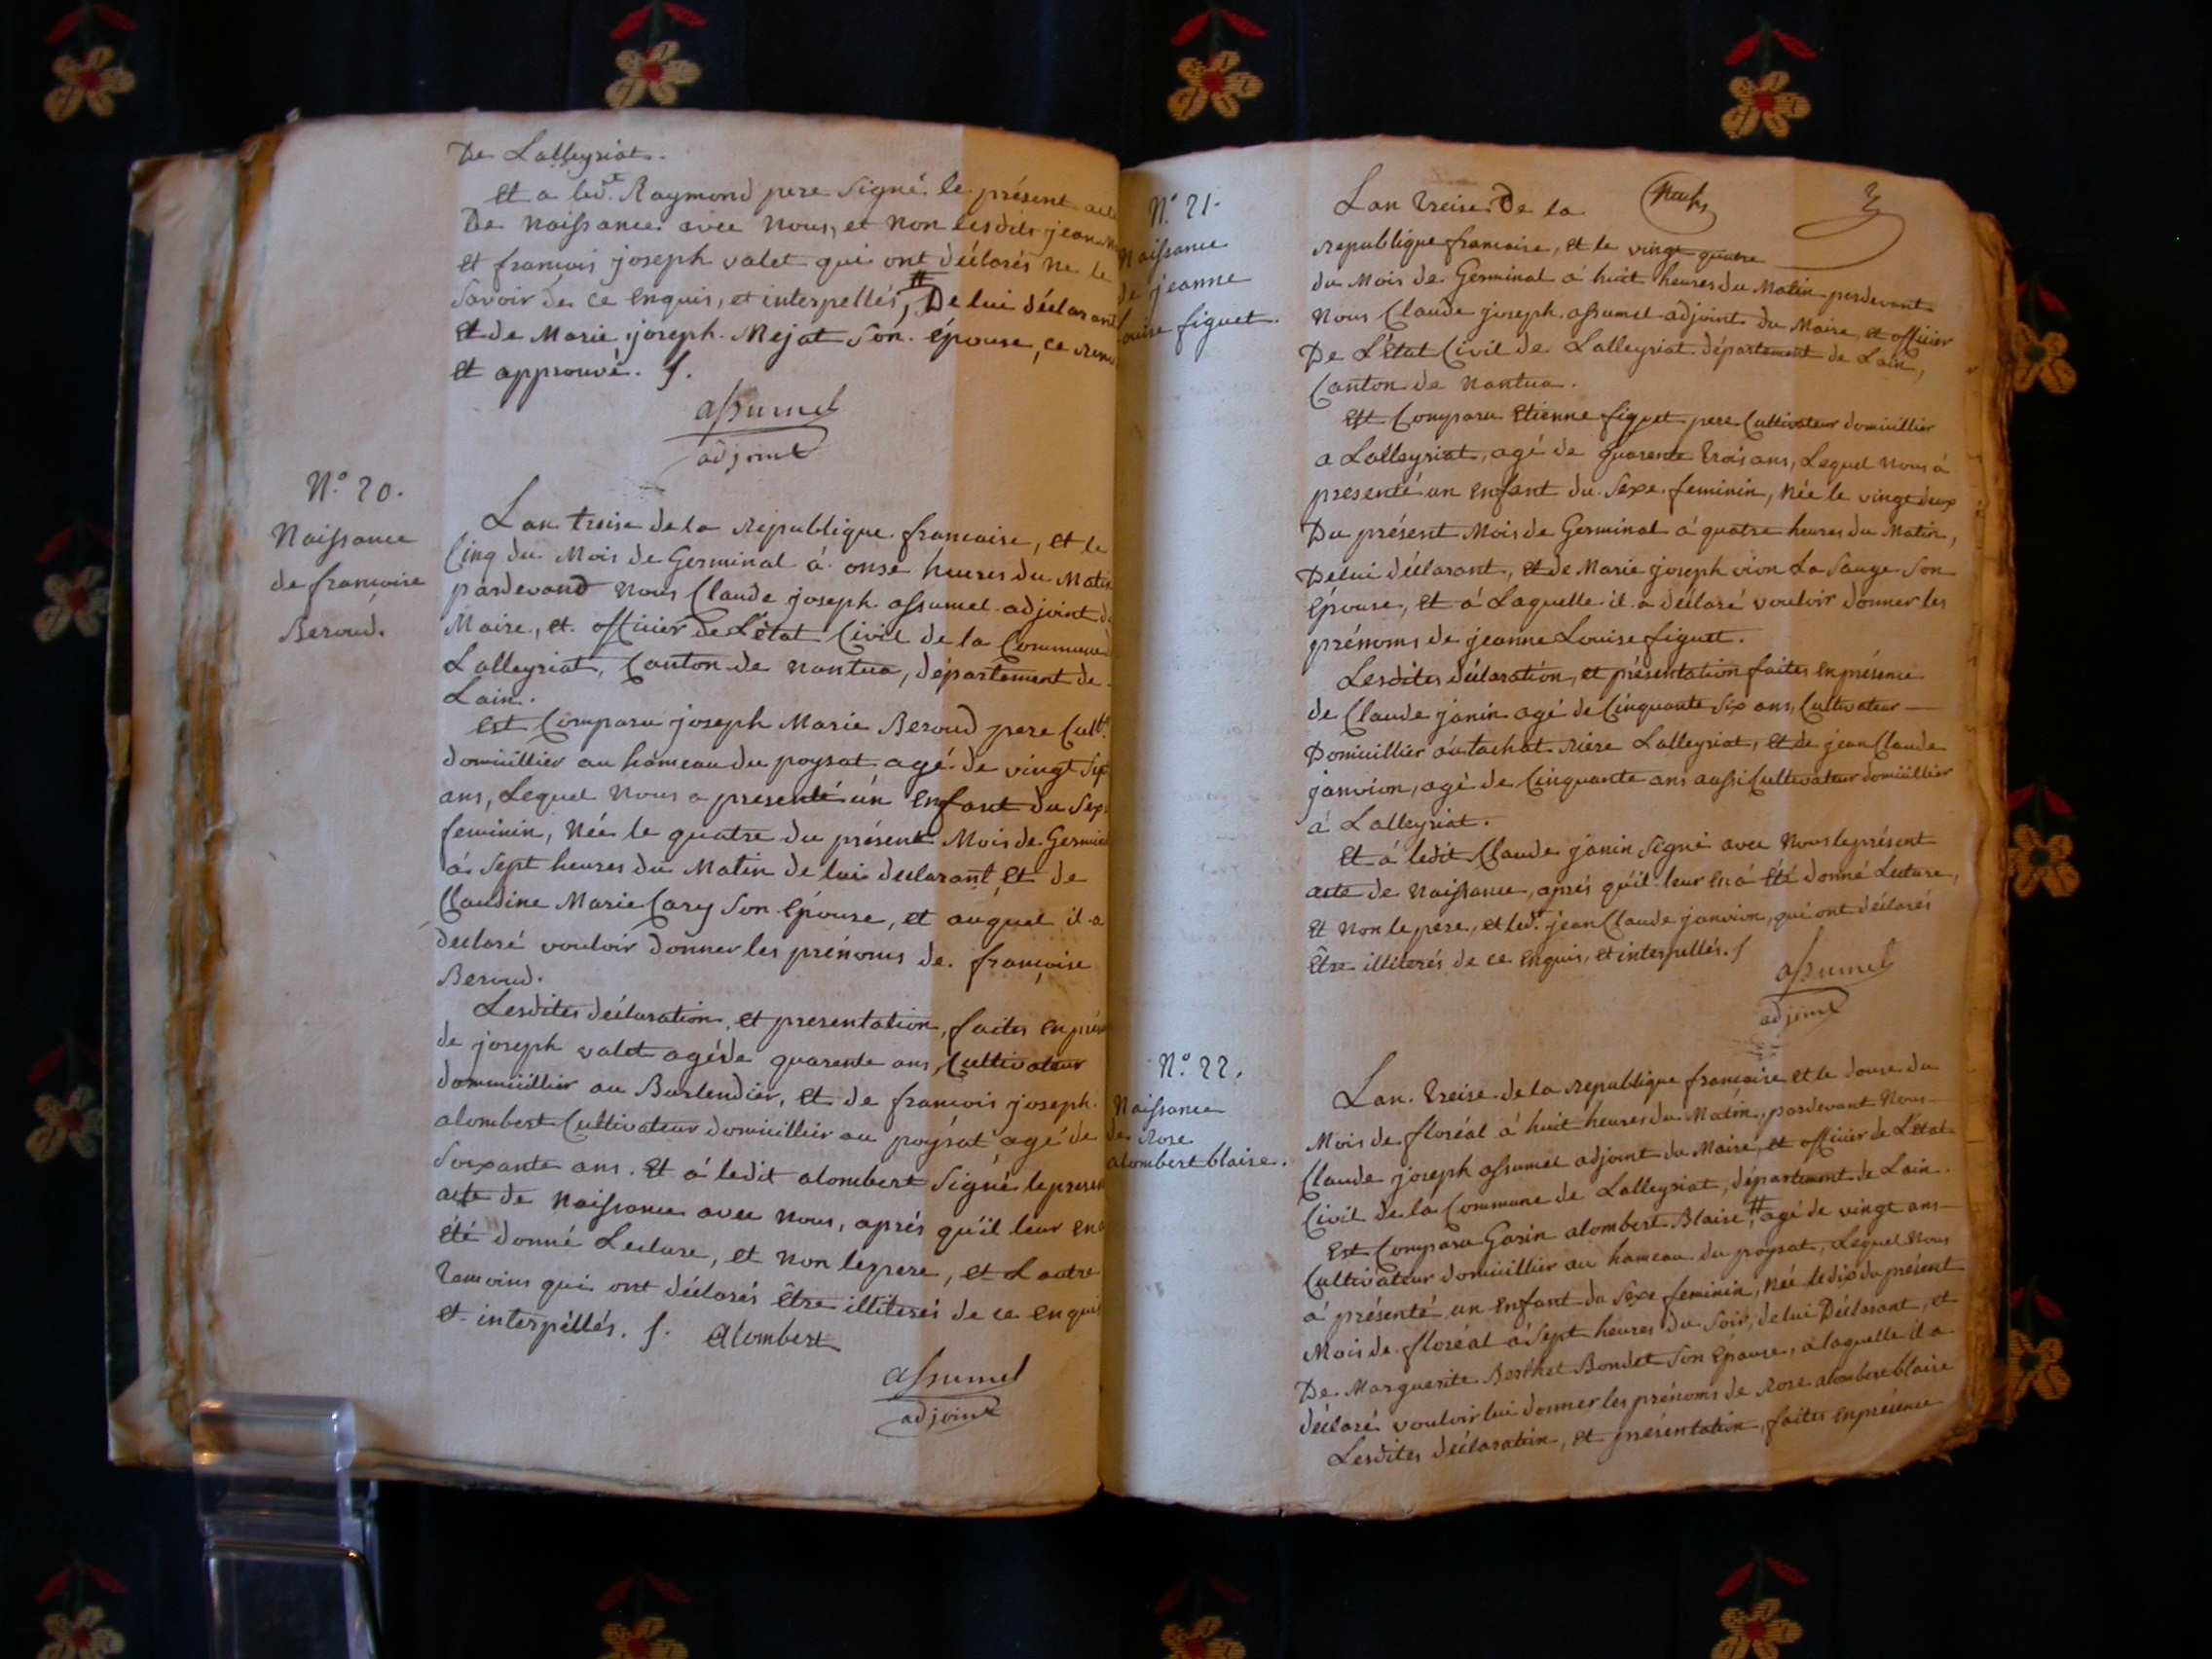 De Lalleyriat.
Et a led.t Raymond pere Signé le présent acte
De Naissance avec Nous, et Non lesdits jean
et francois joseph valet qui ont déclarés Ne le
Savoir de ce Enquis, et interpellés, # De lui déclarant
Et de Marie joseph Mejat Son épouse, ce
et approuvé. /.
assumel
adjoint
N.° 20.
Naissance
de francoise
Beroud.
Lan treise de la republique francaise, et le
Cinq du Mois de Germinal á onse heures du Matin
pardevand Nous Claude joseph assumel adjoint du
Maire, et officier de L'état Civil de la Commune
Lalleyriat, Canton de Nantua, département de
Lain.
Est Comparu joseph Marie Beroud pere Cult.r
domicillier au hameau du poysat agé de vingt Sept
ans, Lequel Nous a presenté un Enfant du Sexe
feminin, Née le quatre du présent Mois de Germinal
á Sept heures du Matin de lui declarant, et de
Claudine Marie Cary Son Epouse, et auquel il a
declaré vouloir donner les prénoms de françoise
Beroud.
Lesdites déclaration, et presentation, faites en
de joseph valet agé de quarente ans, Cultivateur
domicillier au Burlendier, et de francois joseph
alombert Cultivateur domicillier au poysat agé de
Soixante ans. Et á ledit alombert Signé le present
acte de Naissance avec Nous, aprés qu'il leur en a
été donné Lecture, et Non le pere, et Lautre
Temoins qui ont déclarés être illiterés de ce enquis
et interpéllés. /. Alombert
assumel
adjoint
N.° 21.
Naissance
de jeanne
Louise figuet.
Lan Treise De la
republique francaise, et le vingt quatre
du Mois de Germinal á huit heures du Matin pardevant
Nous Claude joseph assumel adjoint du Maire, et officier
De L'état Civil de Lalleyriat département de Lain,
Canton de Nantua.
Est Comparu Etienne figuet pere Cultivateur domicillier
a Lalleyriat, agé de quarente Trois ans, Lequel Nous á
presenté un Enfant du Sexe feminin, Née le vingt deux
Du présent Mois de Germinal á quatre heures du Matin,
De lui déclarant, et de Marie joseph vion La Sauge Son
Epouse, et á Laquelle il a déclaré vouloir donner les
prénoms de jeanne Louise figuet.
Lesdites déclaration, et présentation faites en présence
de Claude janin agé de Cinquante Six ans, Cultivateur
Domicillier au tachat riere Lalleyriat, et de jean Claude
janvion, agé de Cinquante ans aussi Cultivateur domicillier
á Lalleyriat.
Et á ledit Claude janin Signé avec Nous le présent
acte de Naissance, aprés qu'il leur en á été donné Lecture,
Et Non le pere, et led.t jean Claude janvion, qui ont déclarés
être illiterés de ce Enquis, et interpellés. /
assumel
adjoint
N.° 22.
Naissance
de Rose
alombert blaise.
Lan Treise de la republique françoise et le douse du
Mois de floréal á huit heures du Matin, pardevant Nous
Claude joseph assumel adjoint du Maire, et officier de L'état
Civil de la Commune de Lalleyriat, département de Lain.
Est Comparu Garin alombert Blaise, # agé de vingt ans
Cultivateur domicillier au hameau du poysat, Lequel Nous
á présenté un Enfant du Sexe feminin, Née le dix du présent
Mois de floréal á Sept heures du Soir, de lui Déclarant, et
De Marguerite Berthet Bondet Son Epouse, a laquelle il a
déclaré vouloir lui donner les prénoms de Rose alombert blaise
Lesdites déclaration, et présentation, faites en présence